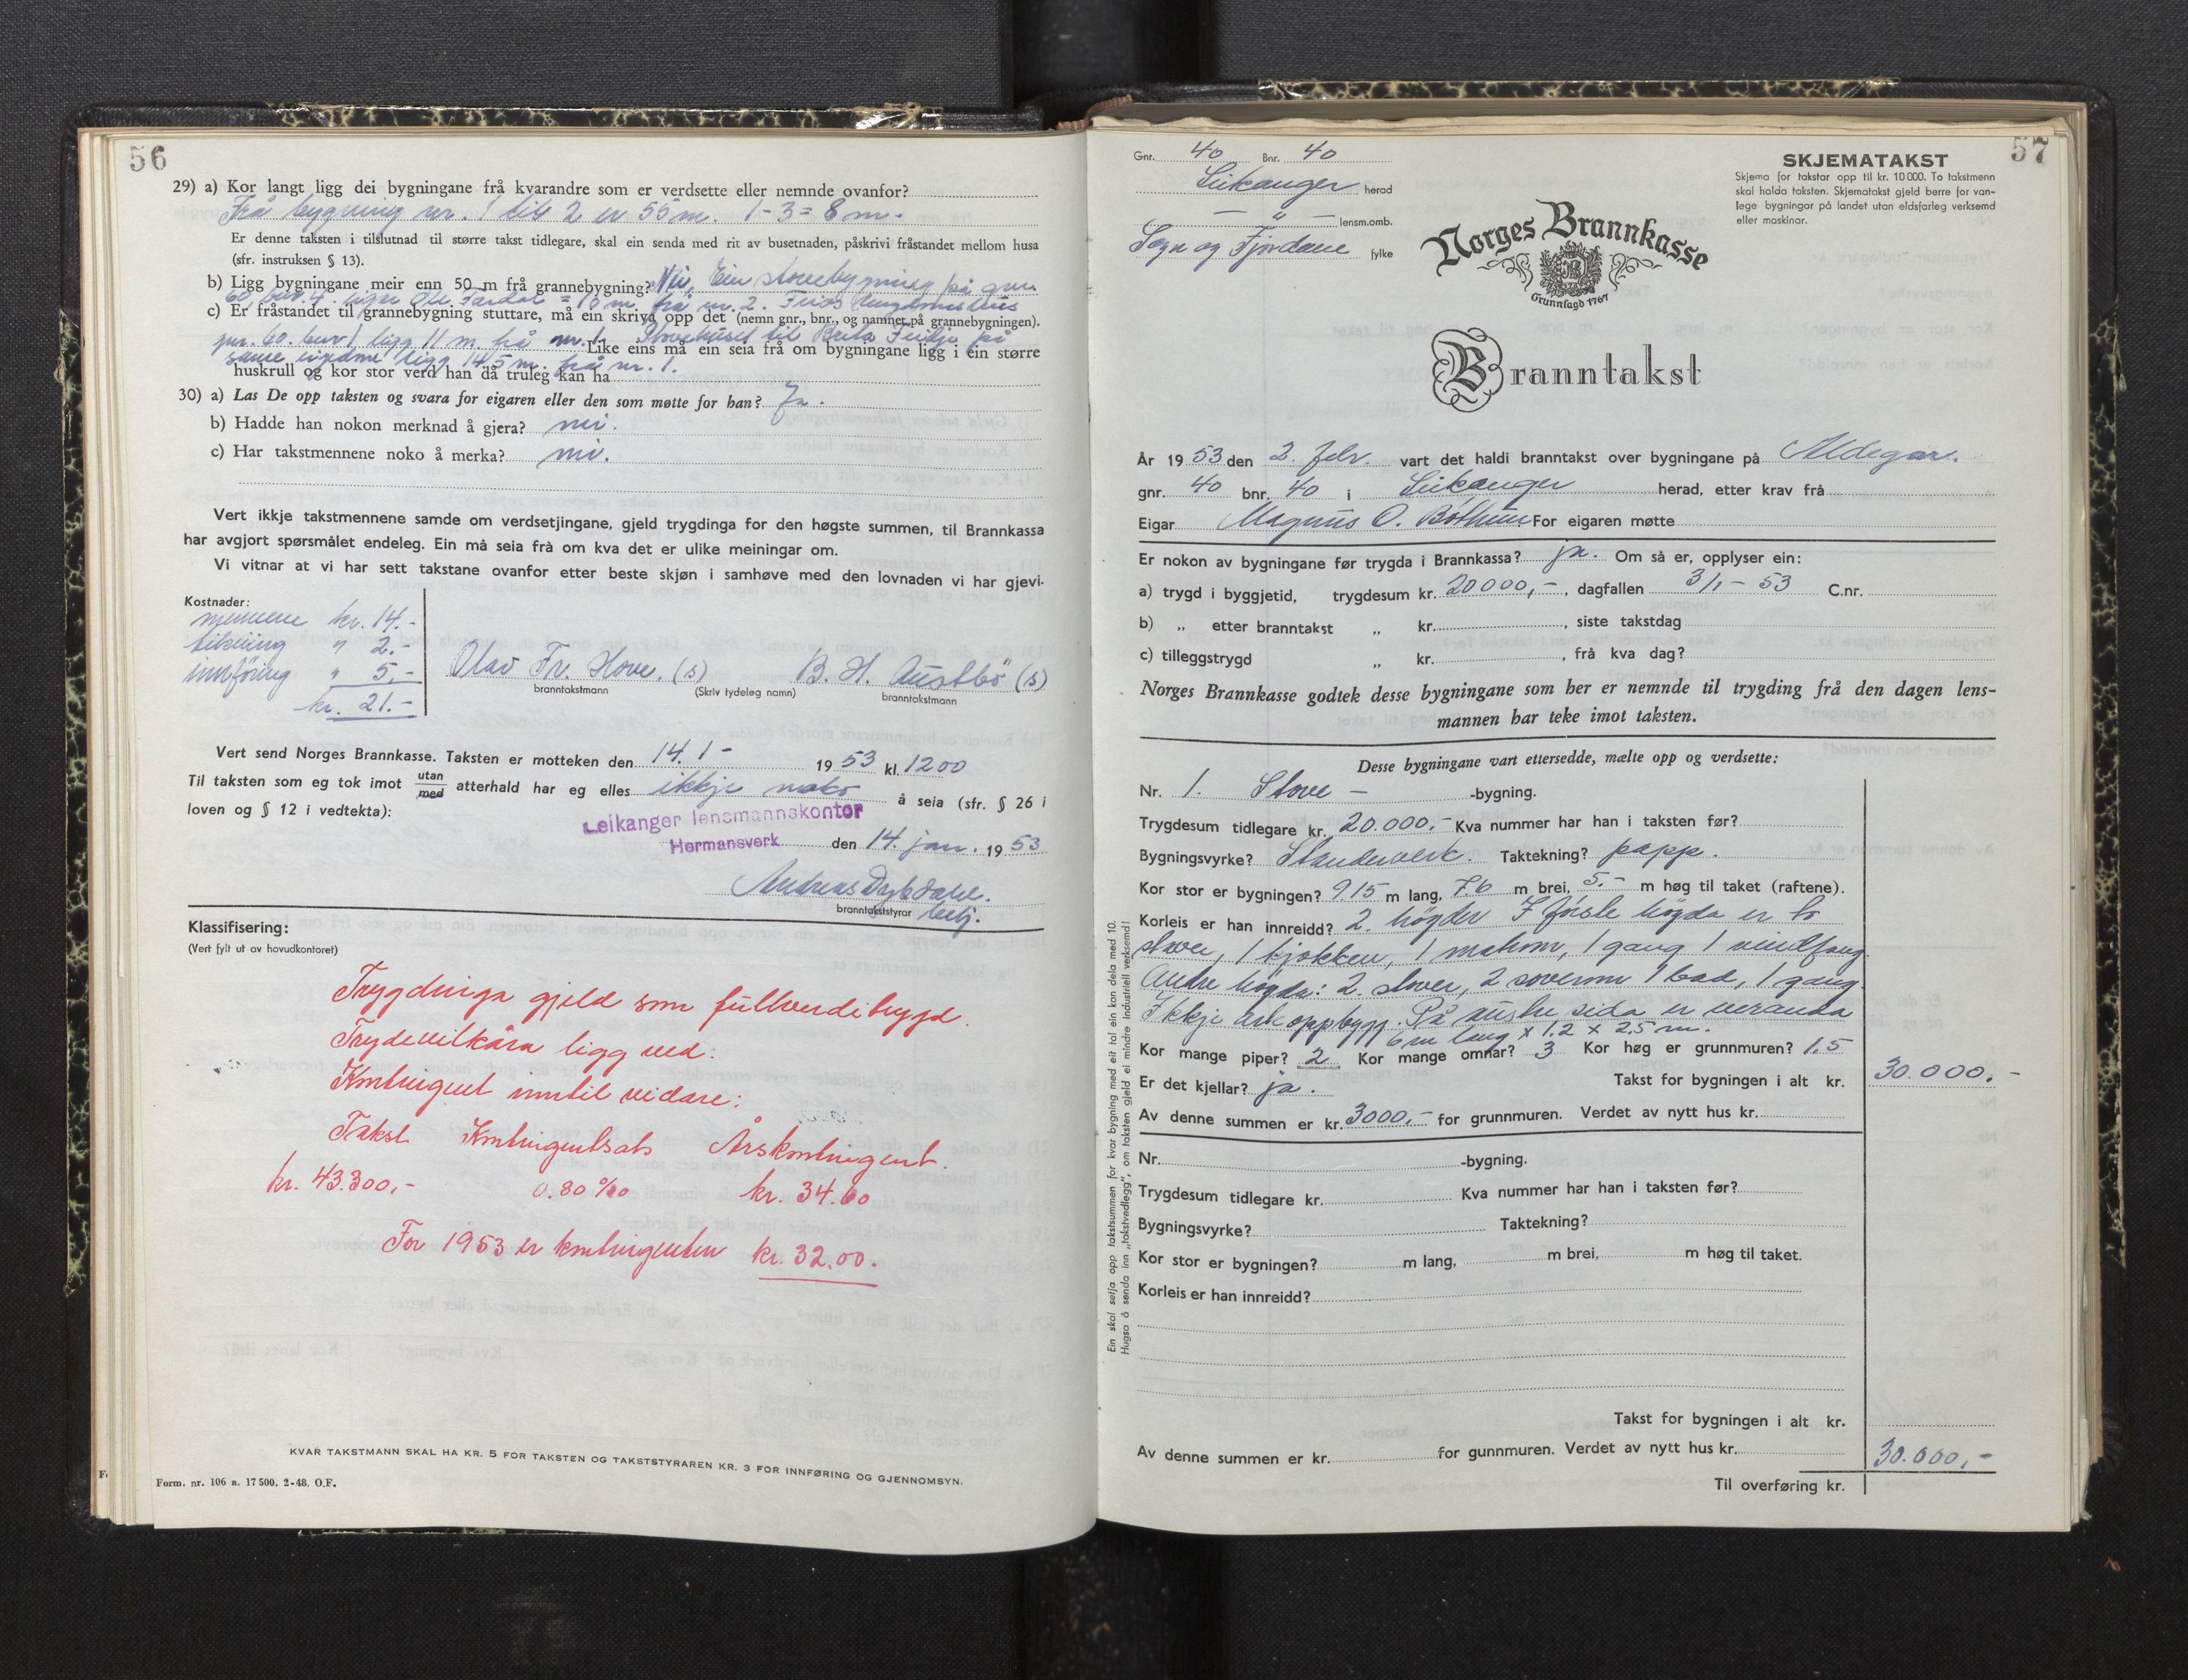 56
29) a) Kor langt ligg dei bygningane frå kvarandre som er verdsette eller nemnde ovanfor?
Frå bygning nr. 1 til 2 er 55 m. 1-3 = 8 m.
Er denne taksten i tilslutnad til større takst tidlegare, skal ein senda med rit av busetnaden, påskrivi fråstandet mellom husa
(sfr. instruksen § 13).
b) Ligg bygningane meir enn 50 m frå grannebygning? Nei, Ein stovebygning på gnr.
60, bnr. 4. eigar Fardal = 16 m. frå nr. 2.
c) Er fråstandet til grannebygning stuttare, må ein skriva opp det (nemn gnr., bnr., og namnet på grannebygningen).
gnr. 60. bnr 1 ligg 11 m. frå nr. 1. Stovehuset til Brita på
Like eins må ein seia frå om bygningane ligg i ein større
same eigedm ligg 14.5 m. frå nr. 1.
huskrull og kor stor verd han då truleg kan ha
30) a) Las De opp taksten og svara for eigaren eller den som møtte for han? Ja.
b) Hadde han nokon merknad å gjera? nei.
c) Har takstmennene noko å merka? nei.
Vert ikkje takstmennene samde om verdsetjingane, gjeld trygdinga for den høgste summen, til Brannkassa
har avgjort spørsmålet endeleg. Ein må seia frå om kva det er ulike meiningar om.
Vi vitnar at vi har sett takstane ovanfor etter beste skjøn i samhøve med den lovnaden vi har gjevi.
Kostnader:
mennene kr. 14.-
tilseiing " 2.-
innføring " 5.-
kr. 21.-
Olav Fr. Hove. (s) B. H. Austbö (s)
branntakstmann (Skriv tydeleg namn) branntakstmann
Vert send Norges Brannkasse. Taksten er motteken den 14. 1 - 19 53 kl. 1200
Til taksten som eg tok imot utan med atterhald har eg elles ikkje noko å seia (sfr. § 26 i
loven og § 12 i vedtekta):
Leikanger lensmannskontor
Hermansverk den 14. jan. 19 53
Andreas Dybdahl.
branntakststyrar
Klassifisering:
(Vert fylt ut av hovudkontoret)
Trygdinga gjeld som fullverditrygd.
Trydevilkåra ligg ved.
Kontingent inntil vidare:
Takst Kontingentsats Årskontingent.
kr. 43.300,- 0.80 ‰ kr. 34.60
For 1953 er kontingenten kr. 32.00.
KVAR TAKSTMANN SKAL HA KR. 5 FOR TAKSTEN OG TAKSTSTYRAREN KR. 3 FOR INNFØRING OG GJENNOMSYN.
Form. nr. 106 a. 17 500. 2-48. O.F.
57
Gnr. 40 Bnr. 40
Leikanger herad
— " — lensm.omb.
Sogn og Fjordane fylke
SKJEMATAKST
Skjema for takstar opp til kr. 10 000. To takstmenn
skal halda taksten. Skjematakst gjeld berre for van-
lege bygningar på landet utan eldsfarleg verksemd
eller maskinar.
Norges Brannkasse
Grunnlagd 1767
Branntakst
År 19 53 den 2. febr. vart det haldi branntakst over bygningane på Aldegar.
gnr. 40 bnr. 40 i Leikanger herad, etter krav frå
Eigar Magnus O. Bøthun For eigaren møtte
Er nokon av bygningane før trygda i Brannkassa? ja. Om så er, opplyser ein:
a) trygd i byggjetid, trygdesum kr. 20000,- , dagfallen 3/1 - 53 C.nr.
b) „ etter branntakst „ kr. , siste takstdag
c) tilleggstrygd „ kr. , frå kva dag?
Norges Brannkasse godtek desse bygningane som her er nemnde til trygding frå den dagen lens-
mannen har teke imot taksten.
Desse bygningane vart ettersedde, mælte opp og verdsette:
Nr. 1. Stove - -bygning.
Trygdesum tidlegare kr. 20.000,- Kva nummer har han i taksten før?
Bygningsvyrke? Standerverk. Taktekning? papp.
Kor stor er bygningen? 9 15 m lang, 7.6 m brei, 5.- m høg til taket (raftene).
Korleis er han innreidd? 2. högder I förste högda er to
stover, 1 kjökken, 1 matrom, 1 gang 1 vindfang.
Andre högda: 2. stover, 2 soverom 1 bad, 1 gang.
Ikkje ark oppbygg. På austre sida er veranda
6 m lang x 1.2 x 2.5 m.
Kor mange piper? 2 Kor mange omnar? 3 Kor høg er grunnmuren? 1.5
Er det kjellar? ja. Takst for bygningen i alt kr. 30.000.-
Av denne summen er kr. 3000,- for grunnmuren. Verdet av nytt hus kr.
Nr. -bygning.
Trygdesum tidlegare kr. Kva nummer har han i taksten før?
Bygningsvyrke? Taktekning?
Kor stor er bygningen? m lang, m brei, m høg til taket.
Korleis er han innreidd?
Takst for bygningen i alt kr.
Av denne summen er kr. for gunnmuren. Verdet av nytt hus kr.
30.000,-
Til overføring kr.
Ein skal setja opp takstsummen for kvar bygning med eit tal ein kan dela med 10.
Hugsa å senda inn „takstvedlegg", om taksten gjeld ei mindre industriell verksemd!